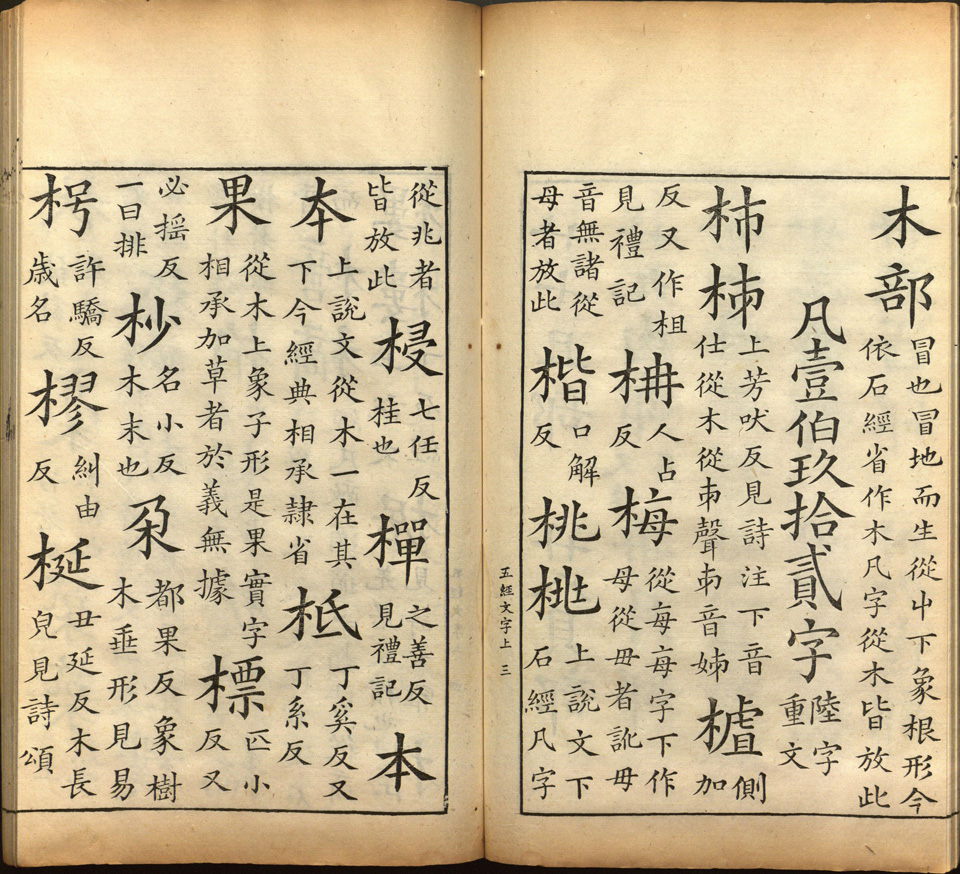 木部冒也冒地而生從屮下象根形今依石經省作木凡字從木皆放此
凡壹伯玖拾貳字陸字重文
杮𣐈上芳吠反見詩注下音仕從木從𠂔聲𠂔音姊樝側加
反又作柤見禮記枏人占反梅從每每字下作母從毋者訛毋
音無諸從母者放此楷口解反桃𣑯上說文下石經凡字
五經文字上 三
從兆者皆放此梫七任反桂也樿之善反見禮記本
夲上說文從木一在其下今經典相承隸省柢丁奚反又丁系反
果從木上象子形是果實字相承加草者於義無據標匹小反又
必搖反一曰排杪名小反木末也朶都果反象樹木垂形見易
枵許驕反歳名樛糾由反梴丑延反木長皃見詩頌